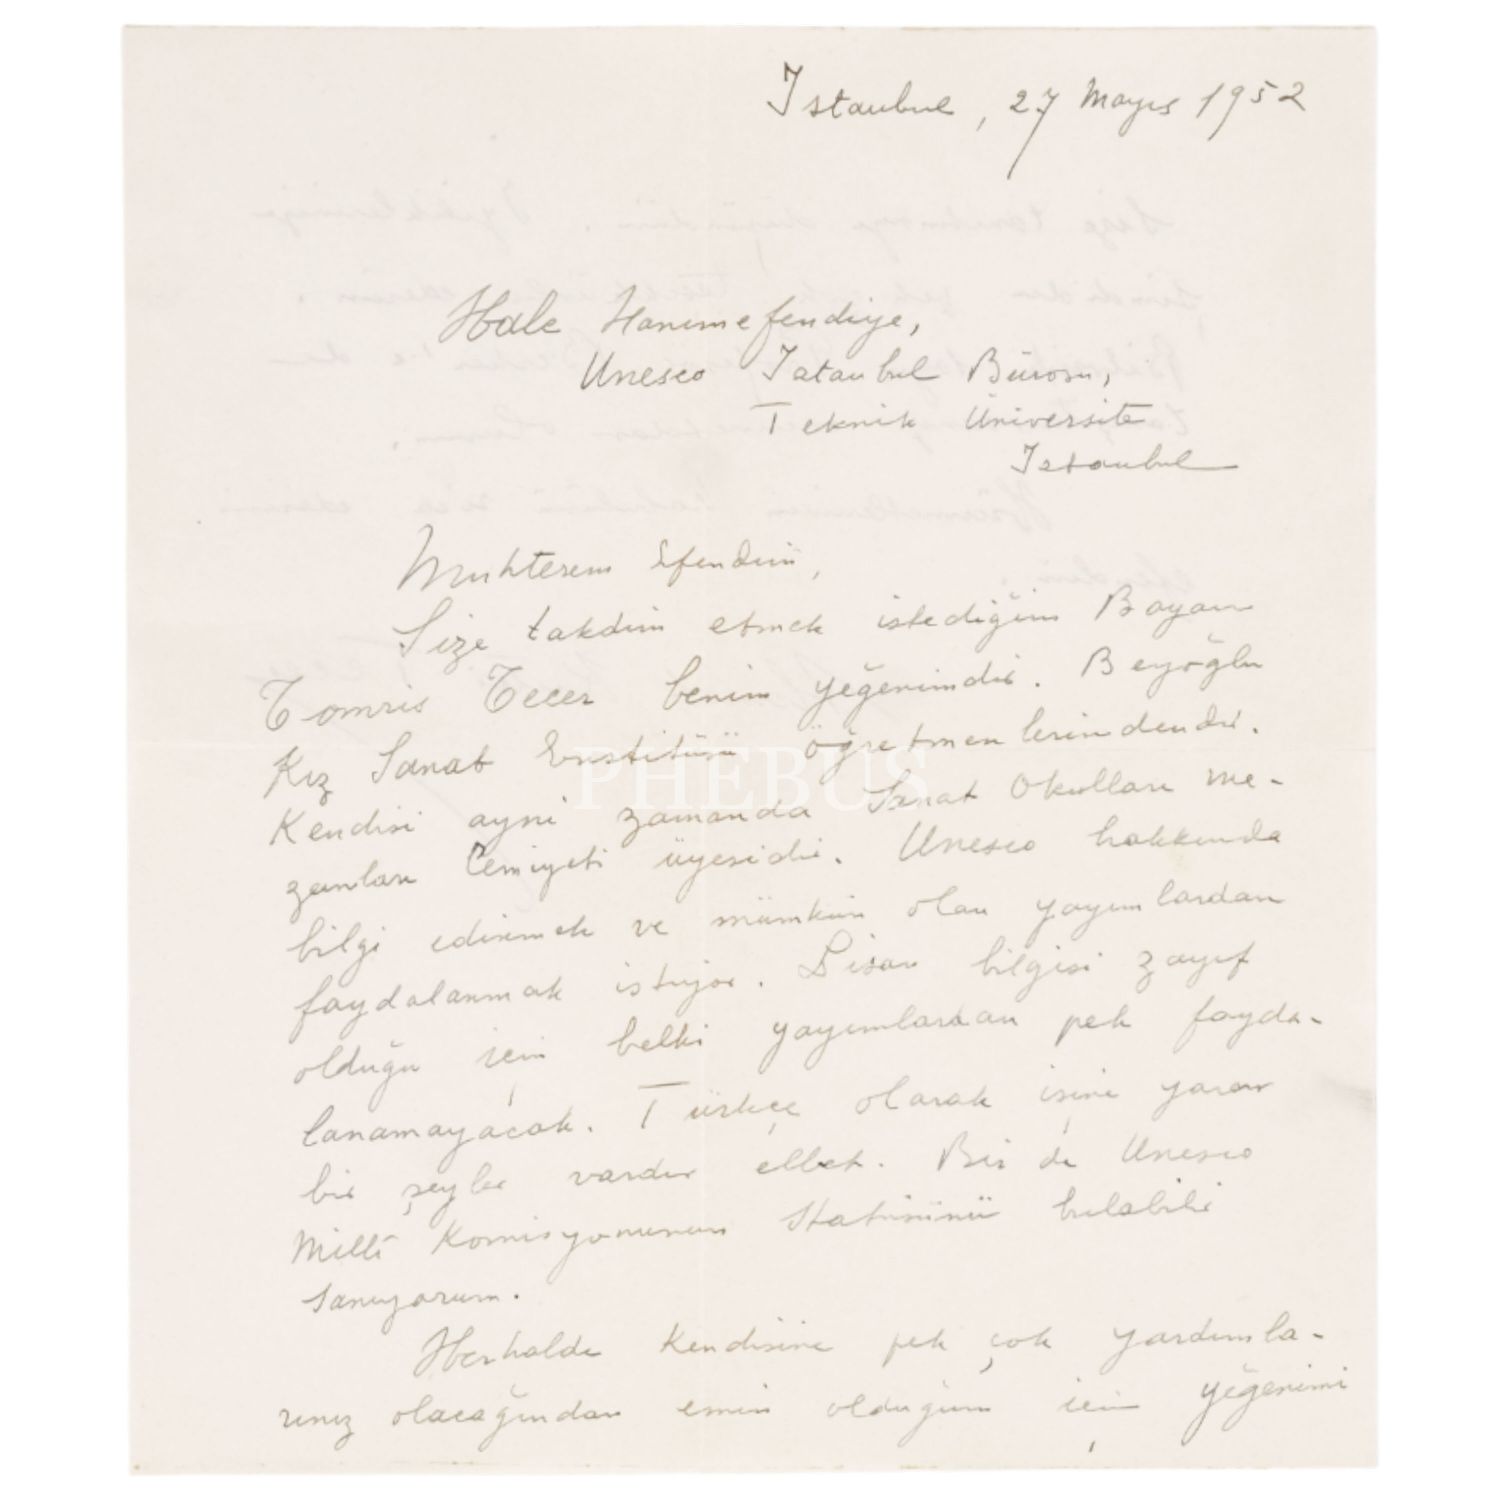 Istanbul, 27 Mayıs 1952
Hale Hanımefendiye,
Unesco Istanbul Bürosu,
Teknik Üniversite
Istanbul
Muhterem Efendim,
Size takdim etmek istediğim Bayan
Tomris Tecer benim yeğenimdir. Beyoğlu
Kız Sanat Enstitüsü öğretmenlerindendir.
PHEBUS
Kendisi ayni zamanda Sanat Okulları me-
zunları Cemiyeti üyesidir. Unesco hakkında
bilgi edinmek ve mümkün olan yayımlardan
faydalanmak istiyor. Lisan bilgisi zayıf
olduğu için belki yayımlardan pek fayda-
lanamayacak. Türkçe olarak işine yarar
bir şeyler vardır elbet. Bir de Unesco
Millî Komisyonunun Statüsünü bulabilir
sanıyorum.
Herhalde kendisine pek çok yardımla-
rınız olacağından emin olduğum için yeğenimi